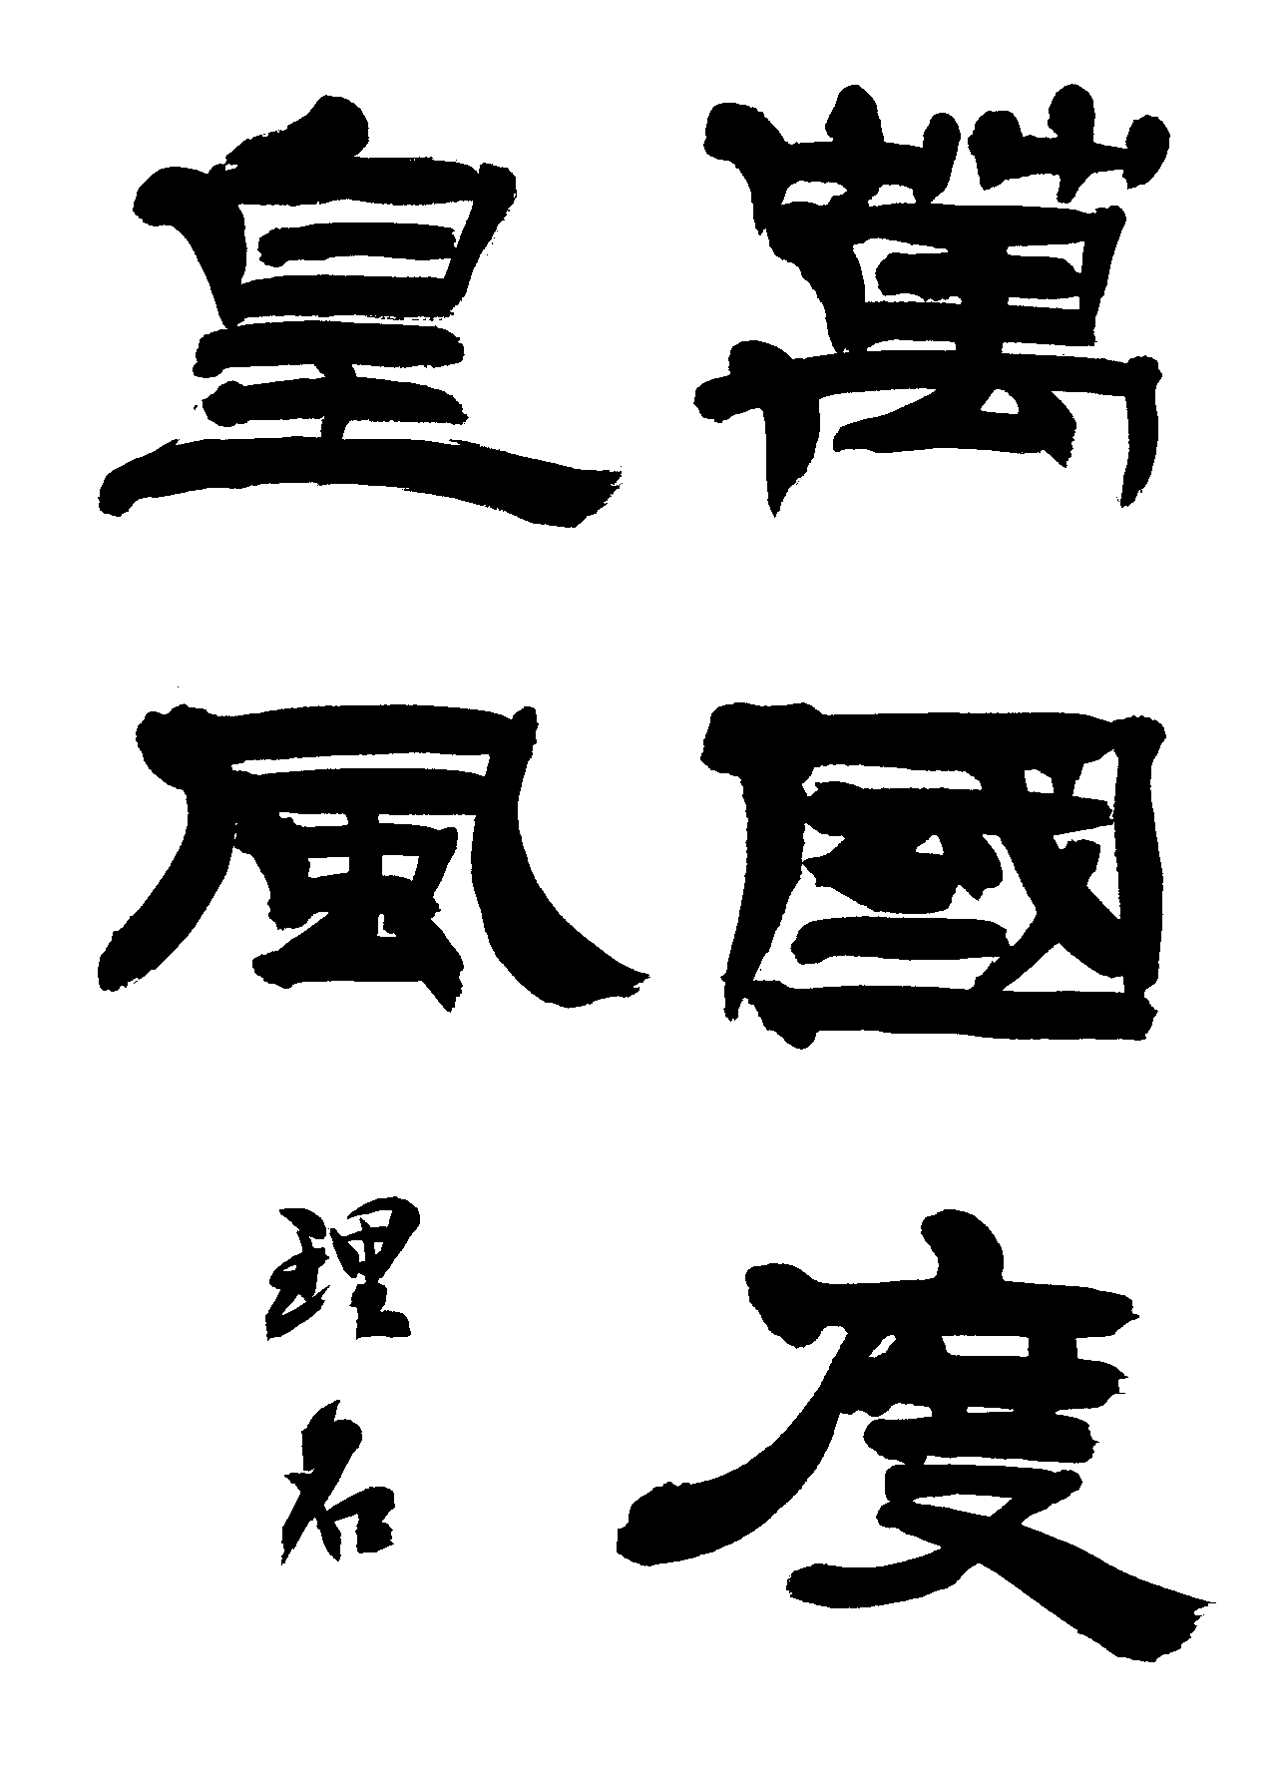 萬國度
皇風
理名